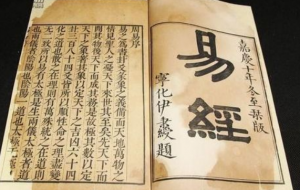 嘉慶十年冬至栞版
易經
寧化伊秉綬題
周易序
易之為書卦爻彖象之義備而天地萬物之
情見聖人之憂天下來世其至矣先天下
而開其物後天下而成其務是故極其數以定
天下之象著其象以定天下之吉凶六十四
卦三百八十四爻皆所以順性命之理盡變
化之道也散之在理則有萬殊統之在道則
无二致所以易有太極是生兩儀太極者道
也兩儀者陰陽也陰陽一道也太極无